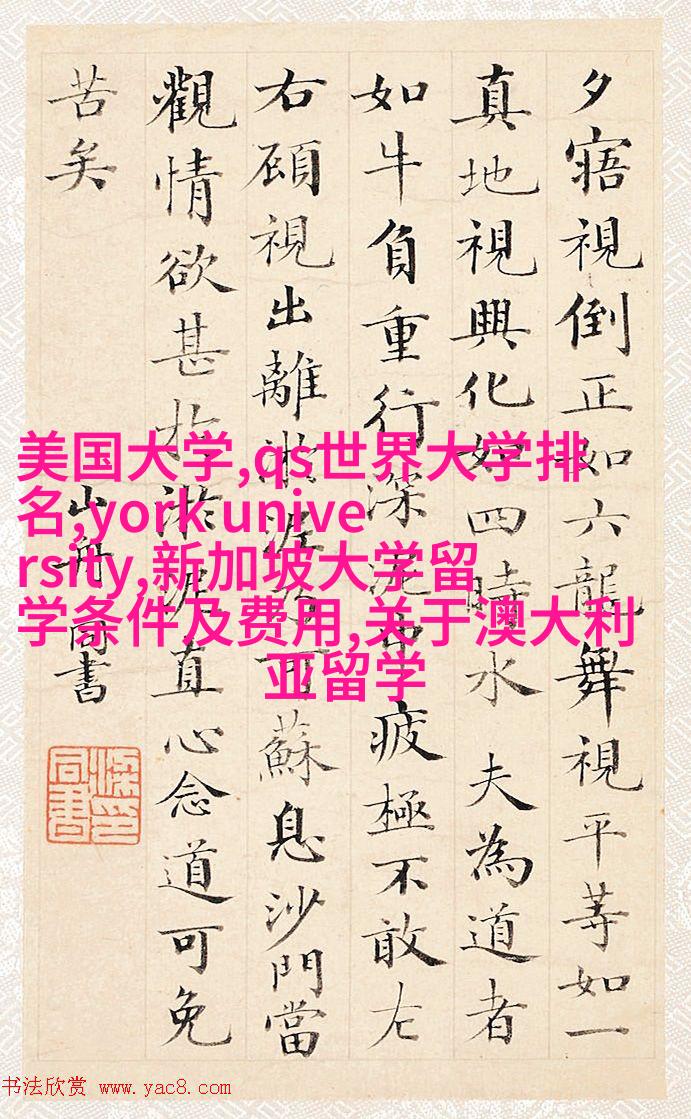 夕寤視倒正如六龍舞視平等如一
真地視興化如四時水 夫為道者
如牛負重行深泥中疲極不敢左
右顧視出離淤泥乃可蘇息沙門當
觀情欲甚於淤泥直心念道可免
苦矣
山舟同書
梁印同書
美国大学,qs世界大学排
名,york unive
rsity,新加坡大学留
学条件及费用,关于澳大利
亚留学
书法欣赏 www.yac8.com